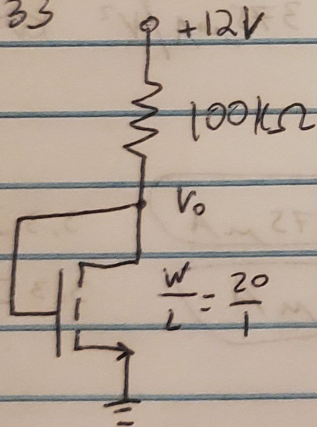 33
+12V
100kΩ
Vo
W/L = 20/1